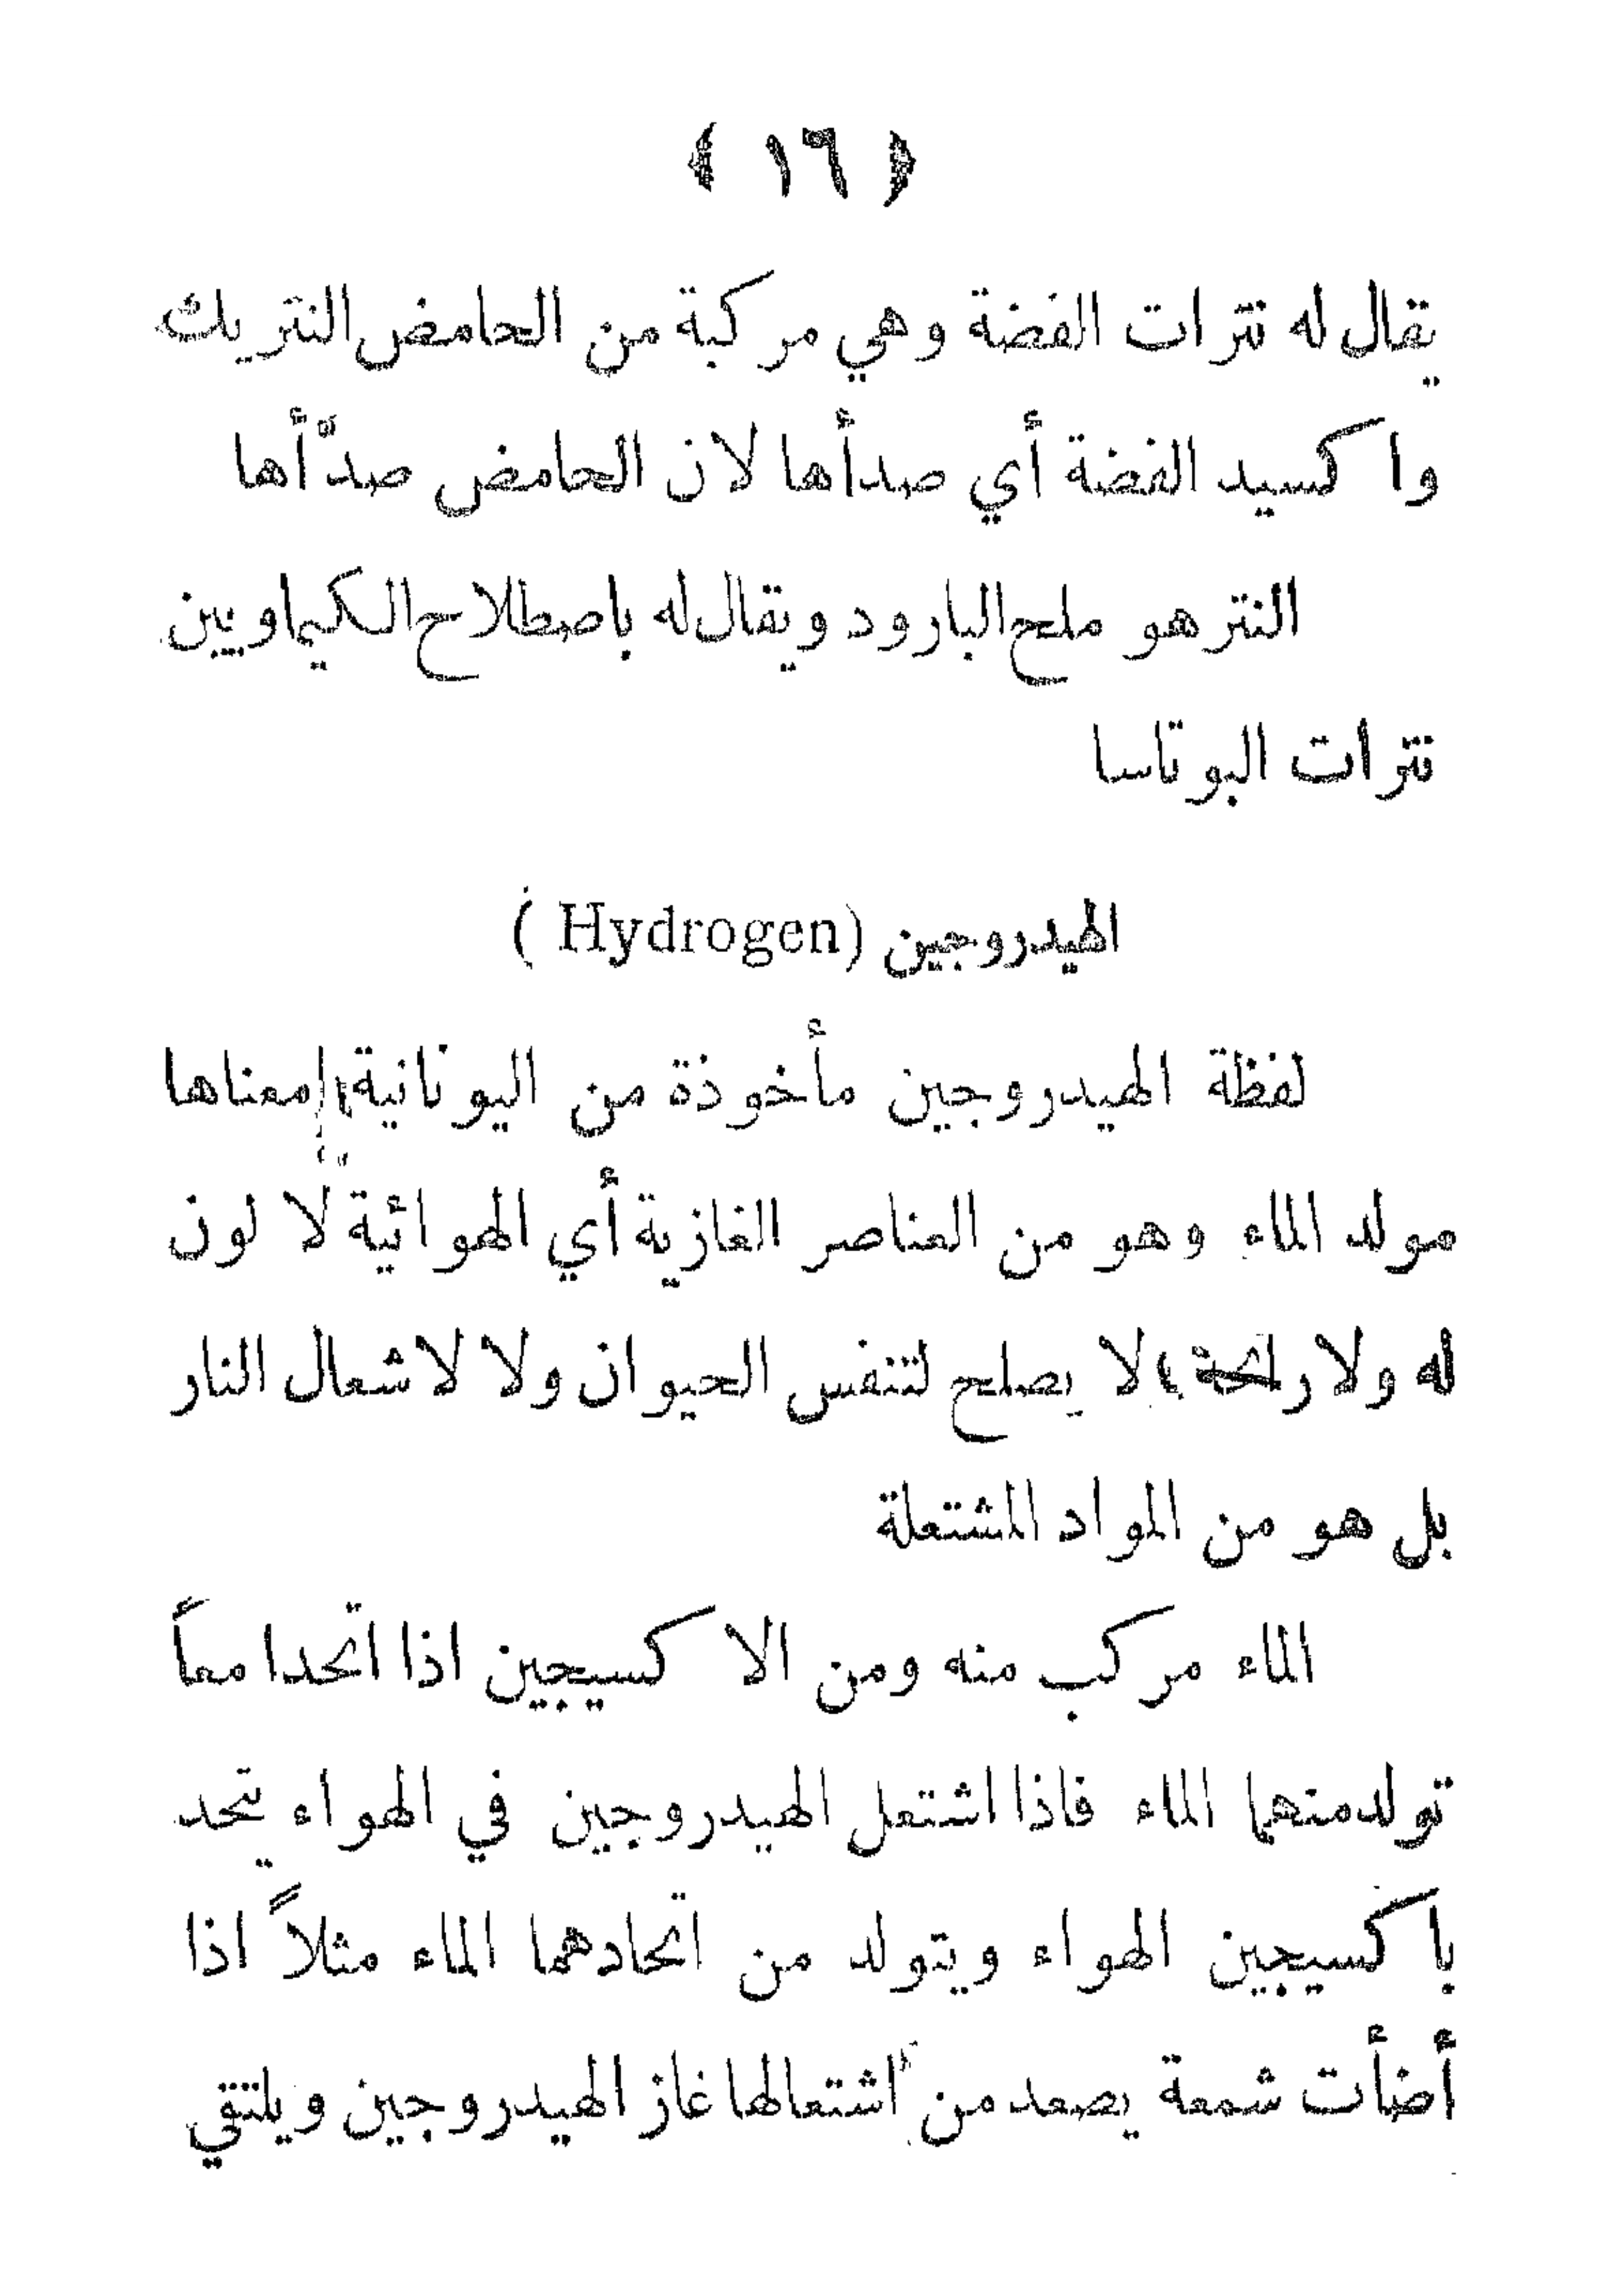 ﴿ ١٦ ﴾
يقال له نترات الفضة وهي مركبة من الحامض النتريك
واكسيد الفضة أي صدأها لان الحامض صدّأها
النتر هو ملح البارود ويقال له باصطلاح الكيماويين
نترات البوتاسا
الهيدروجين (Hydrogen)
لفظة الهيدروجين مأخوذة من اليونانية معناها
مولد الماء وهو من العناصر الغازية أي الهوائية لا لون
له ولا رائحة لا يصلح لتنفس الحيوان ولا لاشعال النار
بل هو من المواد المشتعلة
الماء مركب منه ومن الاكسيجين اذا اتحدا معاً
تولد منهما الماء فاذا اشتعل الهيدروجين في الهواء يتحد
باكسيجين الهواء ويتولد من اتحادهما الماء مثلاً اذا
أضأت شمعة يصعد من اشتعالها غاز الهيدروجين ويلتقي